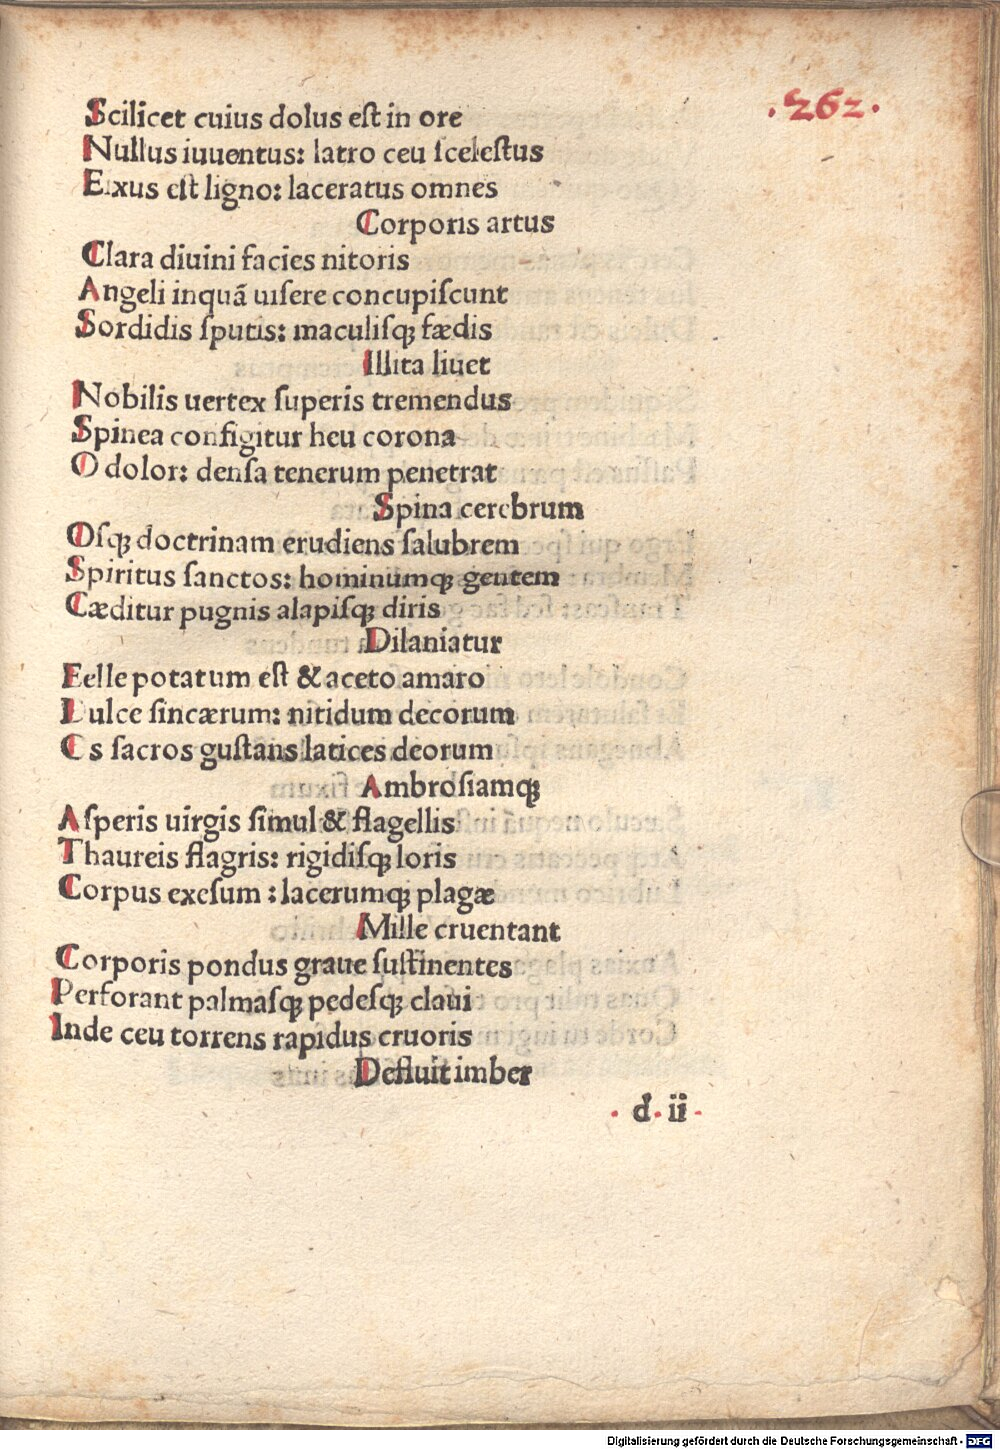 .262.
Scilicet cuius dolus eſt in ore
Nullus iuuentus: latro ceu ſceleſtus
Fixus eſt ligno: laceratus omnes
Corporis artus
Clara diuini facies nitoris
Angeli inquã uiſere concupiſcunt
Sordidis ſputis: maculiſqꝫ fædis
Illita liuet
Nobilis uertex ſuperis tremendus
Spinea configitur heu corona
O dolor: denſa tenerum penetrat
Spina cerebrum
Oſqꝫ doctrinam erudiens ſalubrem
Spiritus ſanctos: hominumqꝫ gentem
Cæditur pugnis alapiſqꝫ diris
Dilaniatur
Felle potatum eſt & aceto amaro
Dulce ſincærum: nitidum decorum
Os ſacros guſtans latices deorum
Ambroſiamqꝫ
Aſperis uirgis ſimul & flagellis
Thaureis flagris: rigidiſqꝫ loris
Corpus exeſum : lacerumqꝫ plagæ
Mille cruentant
Corporis pondus graue ſuſtinentes
Perforant palmaſqꝫ pedeſqꝫ claui
Inde ceu torrens rapidus cruoris
Defluit imber
. d. ii .
Digitalisierung gefördert durch die Deutsche Forschungsgemeinschaft - DFG